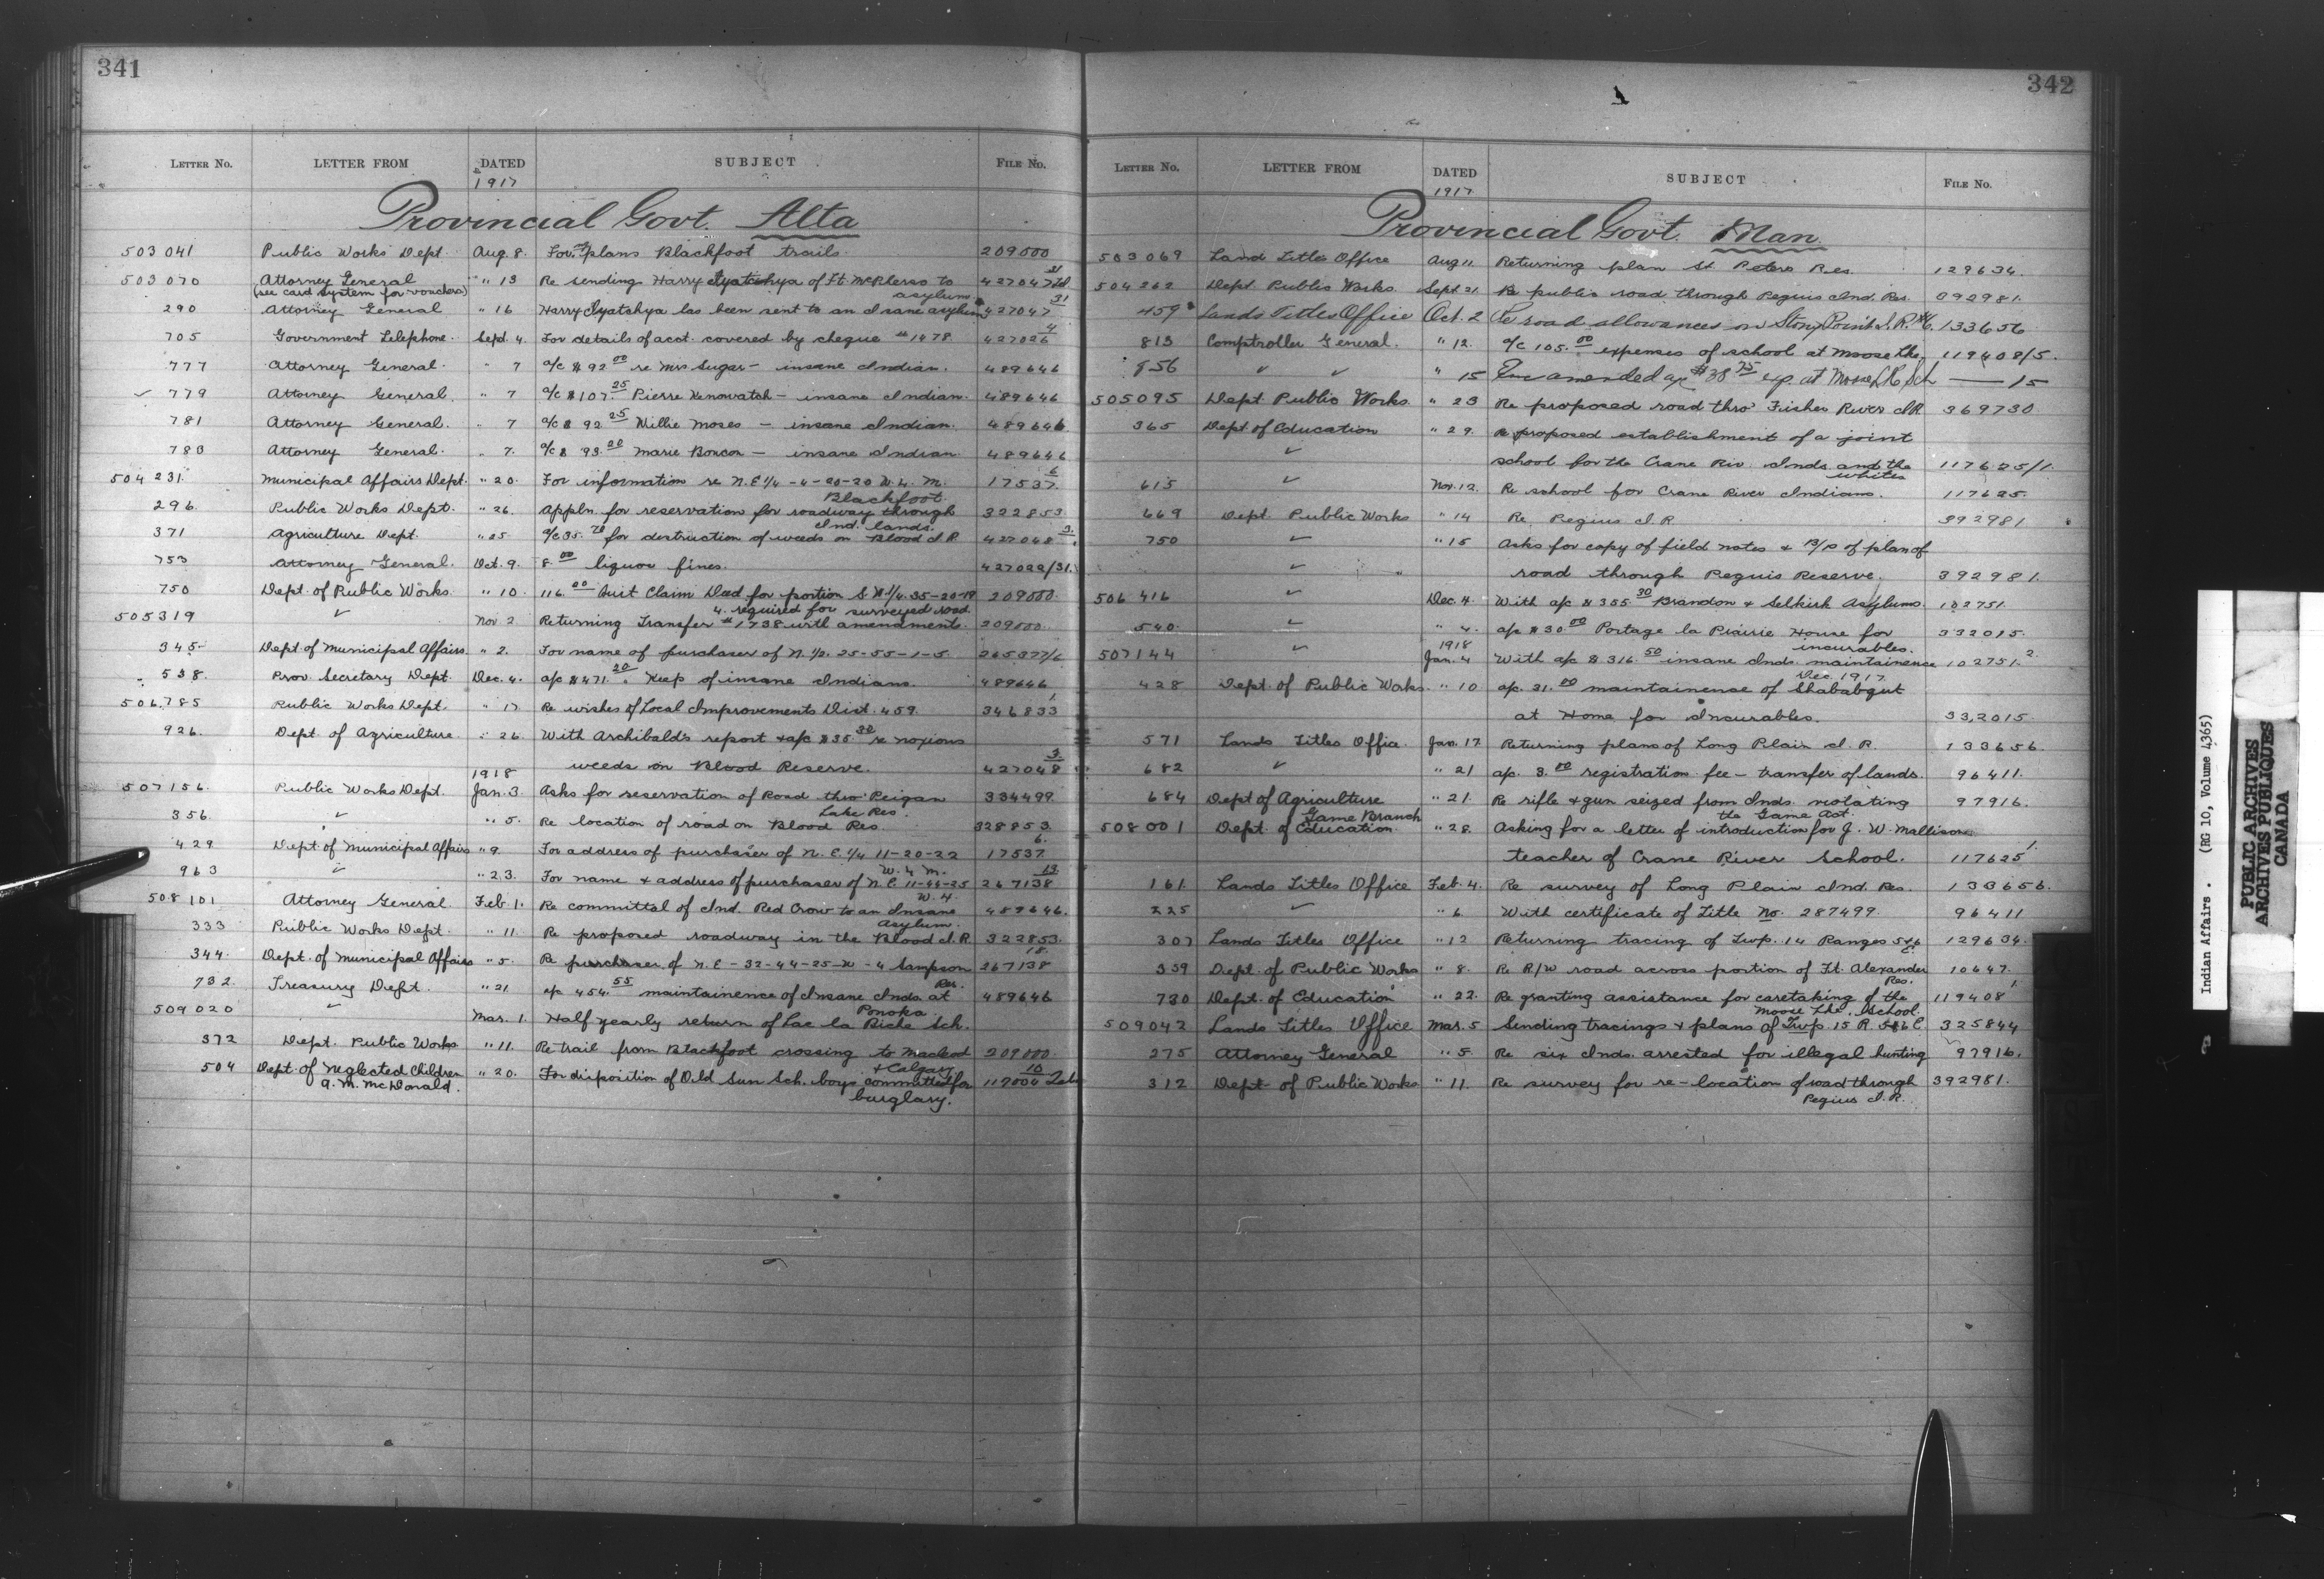 341
LETTER No. LETTER FROM DATED SUBJECT FILE No.
1917
Provincial Govt. Alta
503041 Public Works Dept. Aug. 8. For plans Blackfoot trails. 209000
503070 Attorney General " 13 Re sending Harry of Ft. McPherson to 427047 31
(see card system for vouchers) asylum
290 Attorney General " 16 Harry has been sent to an Insane asylum 427047 31
705 Government Telephone. Sept. 4. For details of acct. covered by cheque # 1478. 427026 4
777 Attorney General. " 7 a/c $ 92.00 re Mrs Sugar - insane Indian. 489646
779 Attorney General. " 7 a/c $ 107.25 Pierre Kenowatch - insane Indian. 489646
781 Attorney General. " 7 a/c $ 92.25 Willie Moses - insane Indian. 489646
783 Attorney General. " 7. a/c $ 93.20 Marie - insane Indian 489646
504231. Municipal Affairs Dept. " 20. For information re N.E 1/4 - 4-20-20 W. 4. M. 17537 6
Blackfoot
296. Public Works Dept. " 26. Appln. for reservation for roadway through 322853
Ind. lands.
371 Agriculture Dept. " 25 a/c 35.70 for destruction of weeds on Blood I.R. 427048 3
753 Attorney General. Oct. 9. 8.00 liquor fines. 427022/31.
750 Dept. of Public Works. " 10. 116.20 Quit Claim Deed for portion S.W. 1/4. 35-20-19 209000.
4. required for surveyed road
505319 ✓ Nov 2 Returning Transfer # 1738 with amendments. 209000.
345 Dept. of Municipal Affairs. " 2. For name of purchaser of N. 1/2. 25-55-1-5. 265377/6
538. Prov. Secretary Dept. Dec. 4. a/c $ 471.20. Keep of insane Indians. 489646
506,785 Public Works Dept. " 17 Re wishes of Local Improvements Dist. 459. 346833 1
926. Dept. of Agriculture " 26. With Archibald's report & a/c $ 35.30 re noxious
weeds on Blood Reserve. 427048 3
1918
507156. Public Works Dept. Jan. 3. Asks for reservation of Road thro' Peigan 334499
Lake Res.
356. ✓ " 5. Re location of road on Blood Res. 328853.
429 Dept. of Municipal Affairs " 9 For address of purchaser of N. E. 1/4 11-20-22 17537 6.
W. 4 M.
963 ✓ " 23. For name & address of purchaser of N. E. 11-44-25 267138 13
W. 4
508101. Attorney General. Feb. 1. Re committal of Ind. Red Crow to an Insane 489646.
Asylum.
333 Public Works Dept. " 11. Re proposed roadway in the Blood I.R. 322853.
344. Dept. of Municipal Affairs " 5. Re purchaser of N.E - 32-44-25-W-4 Sampson 267138 15.
Res.
732. Treasury Dept. " 21 a/c 454.55 maintainence of Insane Inds. at 489646
Ponoka
509020 ✓ Mar. 1. Half yearly return of Lac la Biche Sch.
372 Dept. Public Works " 11. Re trail from Blackfoot crossing to Macleod 209000.
& Calgary
504 Dept. of Neglected Children " 20. For disposition of Old Sun Sch. boys committed for 117004 10
A. M. McDonald. burglary.
342
LETTER No. LETTER FROM DATED SUBJECT FILE No.
1917
Provincial Govt. Man.
503069 Land Titles Office Aug 11. Returning plan St. Peters Res. 129634.
504262 Dept. Public Works Sept. 21. Re public road through Peguis Ind. Res. 392981.
459 Lands Titles Office Oct. 2 Re road allowances on Stony Point I.R. #6. 133656
813 Comptroller General. " 12. a/c 105.00 expenses of school at Moose Lke. 119408/5.
856 ✓ ✓ " 15 amended a/c $38.75 exp. at Moose Lk Sch — 15
505095 Dept. Public Works. " 23 Re proposed road thro' Fisher River I.R. 369730
365 Dept. of Education " 29. Re proposed establishment of a joint
✓ school for the Crane Riv. Inds. and the 117625/1.
whites
615 ✓ Nov. 12. Re school for Crane River Indians. 117625.
669 Dept. Public Works " 14 Re. Pegius I.R. 392981
750 ✓ " 15 Asks for copy of field notes & B/P of plan of
✓ road through Peguis Reserve. 392981.
506416 ✓ Dec. 4. With a/c $ 355.30 Brandon & Selkirk Asylums. 102751.
540. ✓ " 4. a/c $ 30.00 Portage la Prairie House for 332015.
1918 incurables.
507144 ✓ Jan. 4 With a/c $ 316.50 insane Inds. maintainence 102751. 2.
Dec. 1917
428 Dept. of Public Works. " 10 a/c. 31.00 maintainense of Shababgut
at Home for Incurables. 33,2015.
571 Lands Titles Office. Jan. 17. Returning plans of Long Plain I.R. 133656.
682 ✓ " 21 a/c. 3.00 registration fee - transfer of lands. 96411.
684 Dept of Agriculture " 21. Re rifle & gun seized from Inds. violating 97916.
Game Branch the Game Act.
508001 Dept. of Education. " 28. Asking for a letter of introduction for J. W. Mallison
teacher of Crane River School. 117625 1.
161. Lands Titles Office Feb. 4. Re survey of Long Plain Ind. Res. 133656.
225 ✓ " 6. With certificate of Title No. 287499. 96411
307 Lands Titles Office " 12 Returning tracing of Twp. 14 Ranges 5&6 129634.
E.
359 Dept. of Public Works " 8. Re R/W road across portion of Ft. Alexander 10647.
Res.
730 Dept. of Education " 22. Re granting assistance for caretaking of the 119408 1
Moose Lke. School.
509042 Lands Titles Office Mar. 5 Sending tracings & plans of Twp. 15 R. 5&6 E. 325844
275 Attorney General " 5. Re six Inds. arrested for illegal hunting 97916.
312 Dept of Public Works " 11. Re survey for re-location of road through 392981.
Pegius I.R.
Indian Affairs. (RG 10, Volume 4365)
PUBLIC ARCHIVES
ARCHIVES PUBLIQUES
CANADA